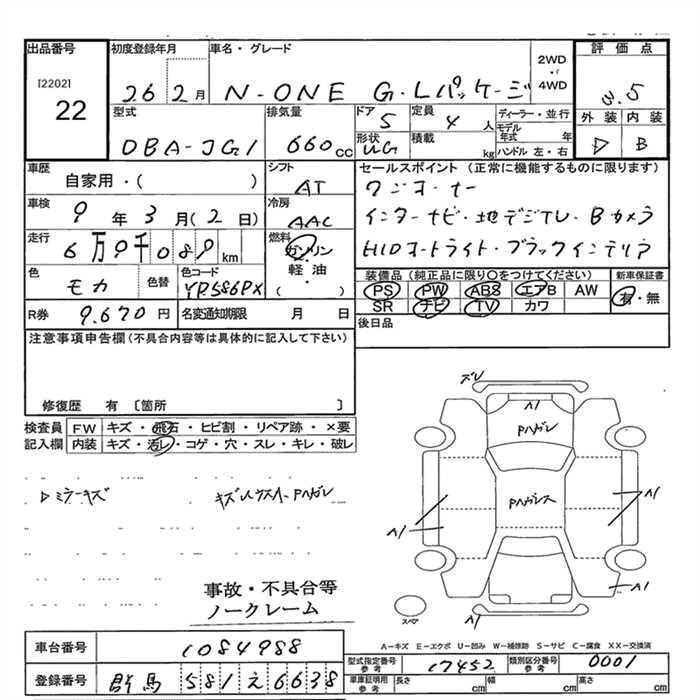 出品番号
[2202]
22
初度登録年月
26 2月
車名・グレード
N-ONE G・Lパッケージ
2WD
・
4WD
評価点
3.5
外装 内装
D B
型式
DBA-JG1
排気量
660cc
ドア
5
形状
UG
定員
4人
積載
kg
ディーラー・並行
モデル年式 年
ハンドル 左・右
車歴
自家用・( )
車検
9年3月(2日)
走行
6万9千089km
色
モカ
色替
色コード
YR586PX
R券
9.670円
名変通知期限 月 日
シフト
AT
冷房
AAC
燃料
ガソリン
軽油・
( )
セールスポイント(正常に機能するものに限ります)
ワンオーナー
インターナビ・地デジTV・Bカメラ
HIDオートライト・ブラックインテリア
装備品(純正品に限り○をつけてください)
PS PW ABS エアB AW
SR ナビ TV カワ
新車保証書
有・無
後日品
注意事項申告欄(不具合内容等は具体的に記入して下さい)
修復歴 有〔箇所 〕
検査員記入欄
FW キズ・飛石・ヒビ割・リペア跡・×要
内装 キズ・汚レ・コゲ・穴・スレ・キレ・破レ
Dミラーキズ
ズレ
A1
Pハガレ
Pハガレス
A1
A1
A1
A1
スペア
事故・不具合等
ノークレーム
A-キズ E-エクボ U-凹み W-補修跡 S-サビ C-腐食 XX-交換済
車台番号
1084988
登録番号
群馬 581 え 6638
型式指定番号
参考
17452
類別区分番号
参考
0001
車庫証明用
参考
長さ cm
幅 cm
高さ cm